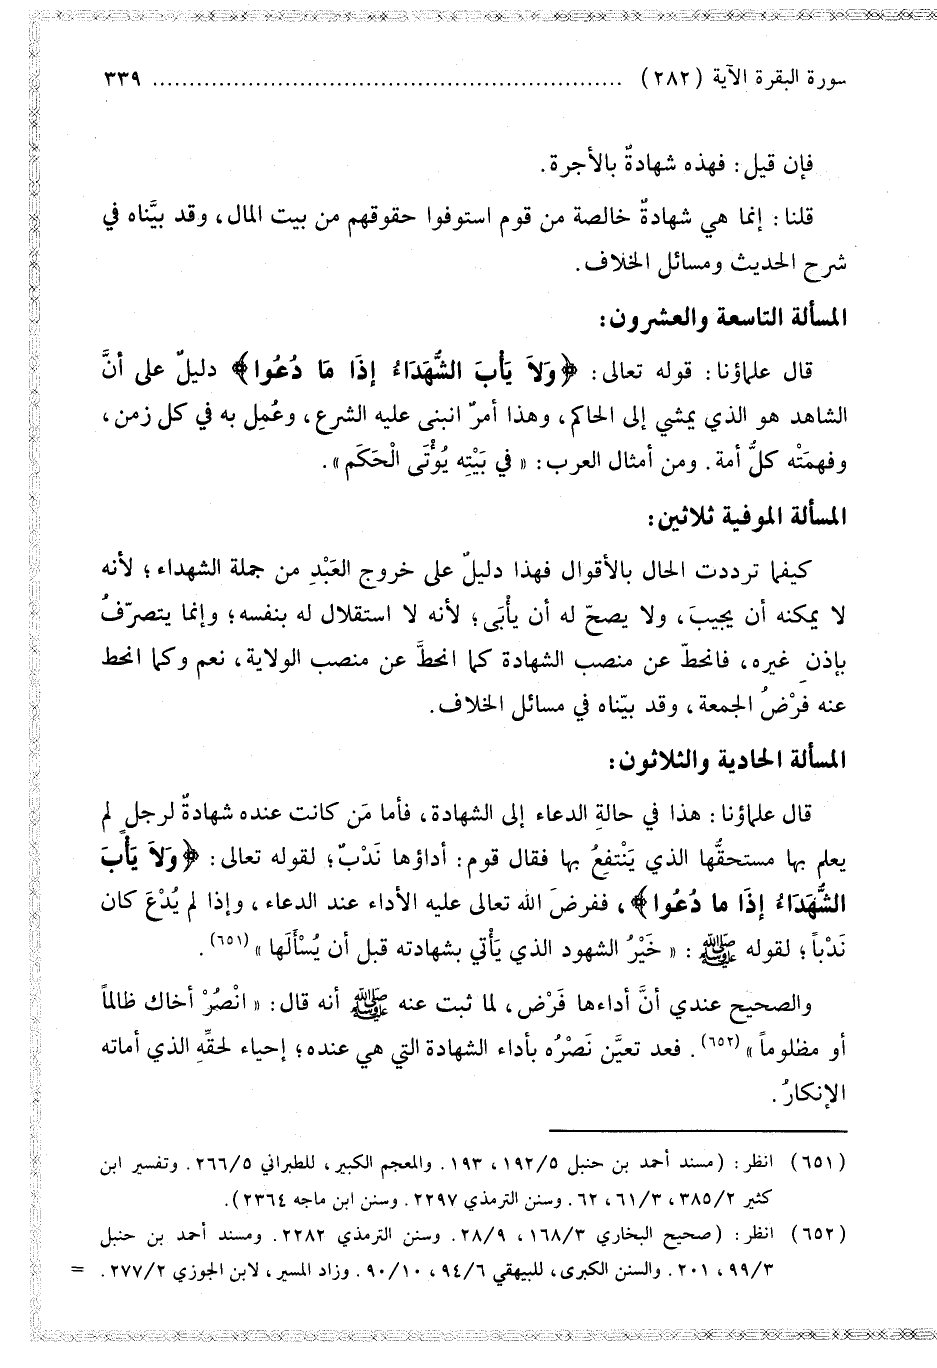 سورة البقرة الآية (٢٨٢) ............................................................ ٣٣٩
فإن قيل: فهذه شهادةٌ بالأجرة.
قلنا: إنما هي شهادةٌ خالصة من قوم استوفوا حقوقهم من بيت المال، وقد بيَّناه في
شرح الحديث ومسائل الخلاف.
المسألة التاسعة والعشرون:
قال علماؤنا: قوله تعالى: ﴿وَلاَ يَأْبَ الشُّهَدَاءُ إذَا مَا دُعُوا﴾ دليلٌ على أنَّ
الشاهد هو الذي يمشي إلى الحاكم، وهذا أمرٌ انبنى عليه الشرع، وعُمِل به في كل زمن،
وفهمَتْه كلُّ أمة. ومن أمثال العرب: «في بَيْتِه يُؤْتَى الْحَكَم».
المسألة الموفية ثلاثين:
كيفما ترددت الحال بالأقوال فهذا دليلٌ على خروج العَبْدِ من جملة الشهداء؛ لأنه
لا يمكنه أن يجيبَ، ولا يصحّ له أن يأْبَى؛ لأنه لا استقلال له بنفسه؛ وإنما يتصرّفُ
بإذنِ غيره، فانحطّ عن منصب الشهادة كما انحطَّ عن منصب الولاية، نعم وكما انحط
عنه فرْضُ الجمعة، وقد بيّناه في مسائل الخلاف.
المسألة الحادية والثلاثون:
قال علماؤنا: هذا في حالةِ الدعاء إلى الشهادة، فأما مَن كانت عنده شهادةٌ لرجلٍ لم
يعلم بها مستحقُّها الذي يَنْتفعُ بها فقال قوم: أداؤها نَدْبٌ؛ لقوله تعالى: ﴿وَلاَ يَأْبَ
الشُّهَدَاءُ إذَا ما دُعُوا﴾، ففرضَ الله تعالى عليه الأداء عند الدعاء، وإذا لم يُدْعَ كان
نَدْباً؛ لقوله ﷺ: «خَيْرُ الشهود الذي يَأْتي بشهادته قبل أن يُسْأَلَها»(٦٥١).
والصحيح عندي أنَّ أداءها فَرْض، لما ثبت عنه ﷺ أنه قال: «انْصُرْ أخاك ظالماً
أو مظلوماً»(٦٥٢). فعد تعيَّن نَصْرُه بأداء الشهادة التي هي عنده؛ إحياء لحقِّهِ الذي أماته
الإنكارُ.
(٦٥١) انظر: (مسند أحمد بن حنبل ١٩٢/٥، ١٩٣. والمعجم الكبير، للطبراني ٢٦٦/٥. وتفسير ابن
كثير ٣٨٥/٢، ٦١/٣، ٦٢. وسنن الترمذي ٢٢٩٧. وسنن ابن ماجه ٢٣٦٤).
(٦٥٢) انظر: (صحيح البخاري ١٦٨/٣، ٢٨/٩. وسنن الترمذي ٢٢٨٢. ومسند أحمد بن حنبل
٩٩/٣، ٢٠١. والسنن الكبرى، للبيهقي ٩٤/٦، ٩٠/١٠. وزاد المسير، لابن الجوزي ٢٧٧/٢. =